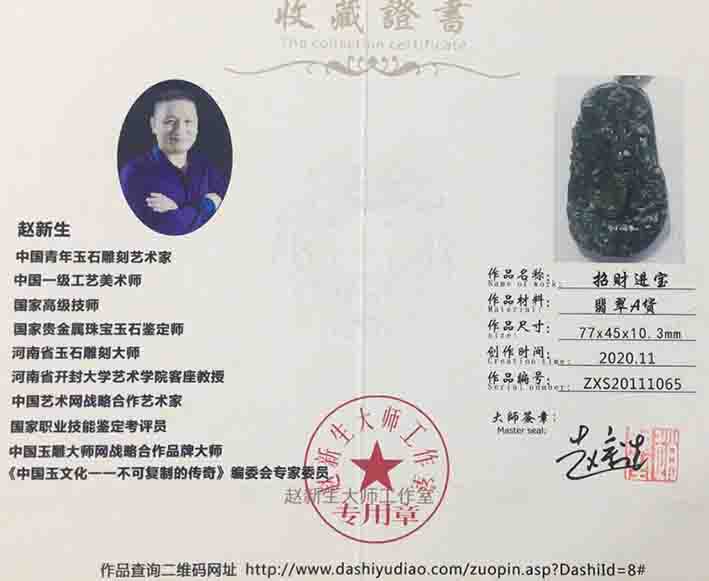 收藏證書
The collection certificate
赵新生
中国青年玉石雕刻艺术家
中国一级工艺美术师
国家高级技师
国家贵金属珠宝玉石鉴定师
河南省玉石雕刻大师
河南省开封大学艺术学院客座教授
中国艺术网战略合作艺术家
国家职业技能鉴定考评员
中国玉雕大师网战略合作品牌大师
《中国玉文化——不可复制的传奇》编委会专家委员
作品名称: 招财进宝
Name of work:
作品材料: 翡翠A货
Material:
作品尺寸: 77x45x10.3mm
size:
创作时间: 2020.11
Creation time:
作品编号: ZXS20111065
Serial number:
大师签章:
Master seal:
赵新生
赵新生大师工作室
专用章
赵新生大师工作室
作品查询二维码网址 http://www.dashiyudiao.com/zuopin.asp?DashiId=8#